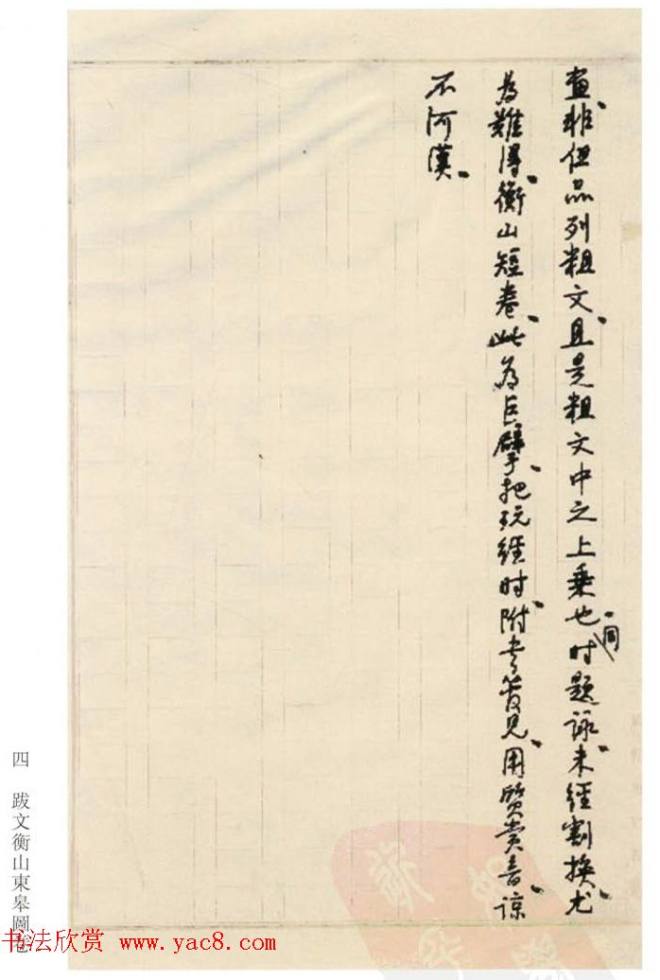 畫、非但品列粗文、且是粗文中之上乘也、同时題詠、未經割換、尤
為難得、衡山短卷、此為巨擘、把玩經时、附書管見、用質賞音、諒
不河漢、
四 跋文衡山東皋圖卷
书法欣赏 www.yac8.com